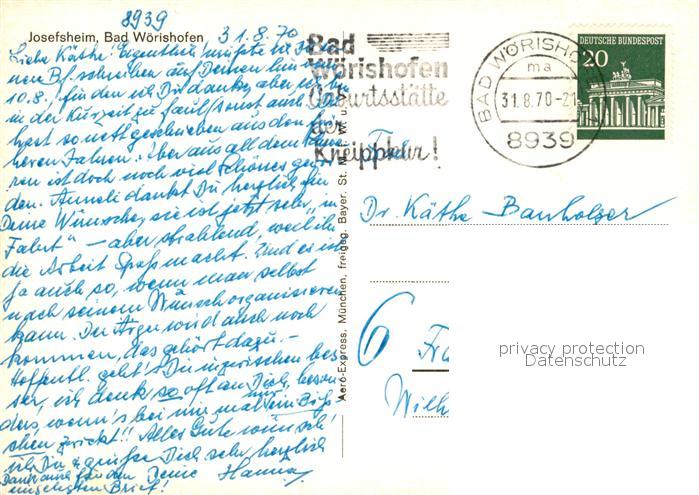 8939
Josefsheim, Bad Wörishofen
31.8.70
Liebe Käthe! Eigentlich müßte ich
nen Bf. schreiben auf Deinen lieben vom
10.8., für den ich Dir danke, aber ich bin
in der Kurzeit zu faul (sonst auch). Du
hast so nett geschrieben aus den frü-
heren Jahren. Aber aus all dem
ren ist doch noch viel Schönes gewor-
den. Anneli dankt Dir herzlich für
Deine Wünsche, sie ist jetzt sehr "in
Fahrt" – aber strahlend, weil ihr
die Arbeit Spaß macht. Und es ist
ja auch so, wenn man selbst
nach seinem Wunsch organisieren
kann. Der Ärger wird auch noch
kommen, das gehört dazu. –
Hoffentl. geht's Dir inzwischen bes-
ser, ich denk so oft an Dich, beson-
ders, wenn's bei mir mal nur ein Biß-
chen zwickt!! Alles Gute wünsch'
ich Dir & grüße Dich sehr herzlich
Deine Hanna
Dank auch für den
Brief!
Aero-Express, München, freigeg. Bayer. St. Min. f. W. u.
Bad
Wörishofen
Geburtsstätte
der
Kneippkur!
BAD WÖRISHOFEN
ma
31.8.70-21
8939
DEUTSCHE BUNDESPOST
20
Frau
Dr. Käthe Banholzer
6 Fr
Wilh
privacy protection
Datenschutz